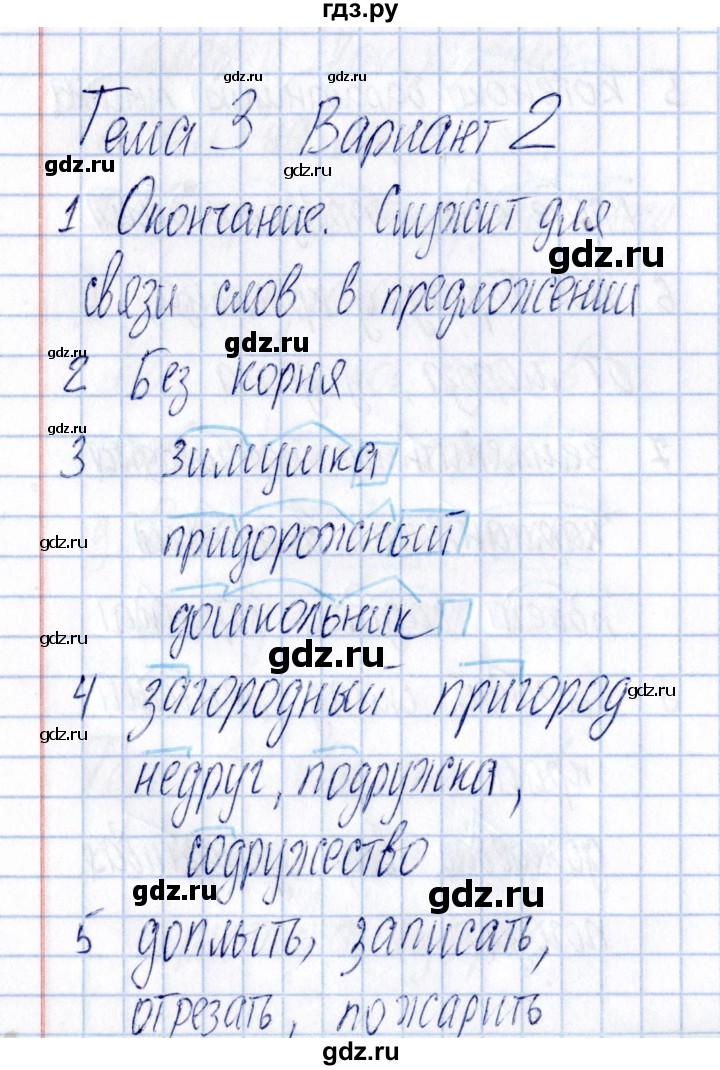 гдз.ру
gdz.ru gdz.ru
Тема 3 Вариант 2
gdz.ru gdz.ru
1 Окончание. Служит для
gdz.ru
связи слов в предложении
gdz.ru
gdz.ru
2 Без корня
gdz.ru
3 зимушка
gdz.ru gdz.ru
придорожный
дошкольник
gdz.ru
gdz.ru
4 загородный пригород
gdz.ru
gdz.ru
недруг, подружка,
содружество
gdz.ru gdz.ru
5 доплыть, записать,
отрезать, пожарить
gdz.ru